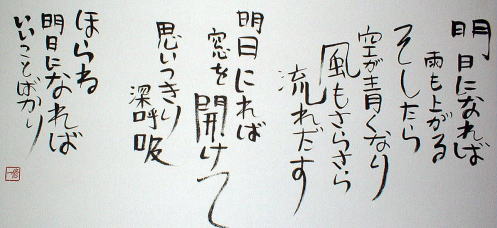 明日になれば
雨も上がる
そしたら
空が青くなり
風もさらさら
流れだす
明日にれば
窓を開けて
思いっきり
深呼吸
ほらね
明日になれば
いいことばかり